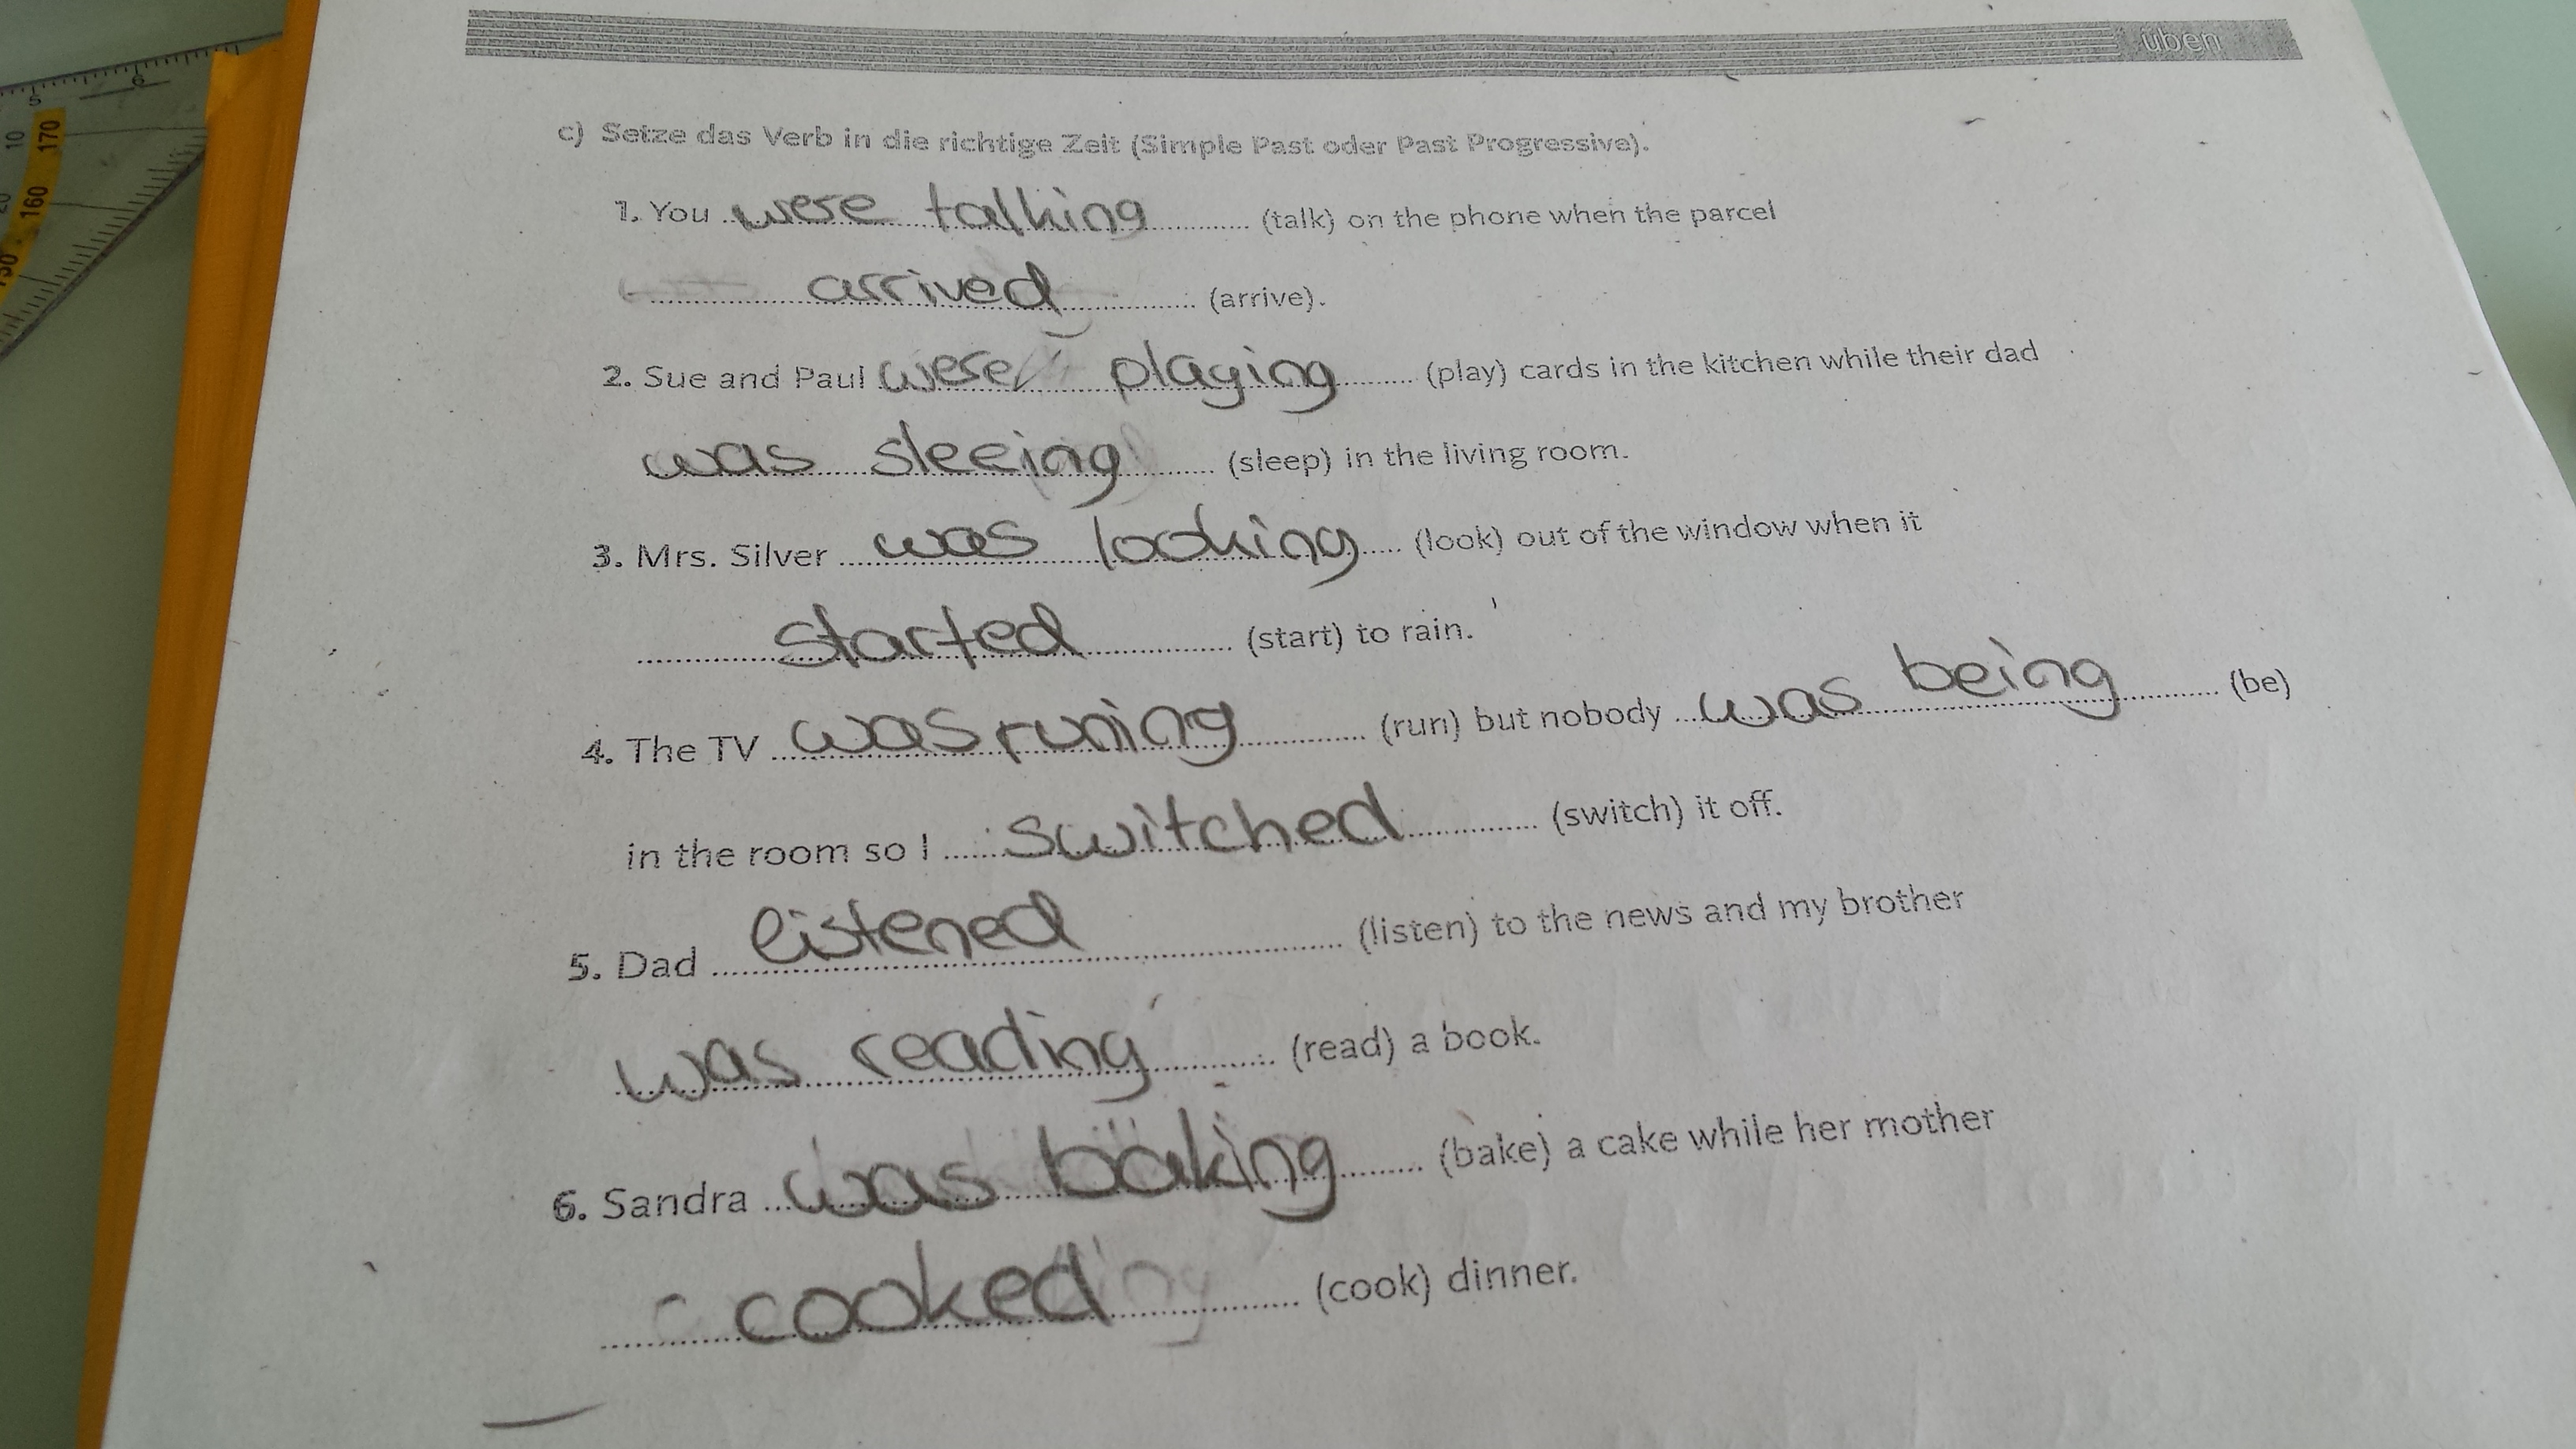 üben
c) Setze das Verb in die richtige Zeit (Simple Past oder Past Progressive).
1. You were talking (talk) on the phone when the parcel
arrived (arrive).
2. Sue and Paul were playing (play) cards in the kitchen while their dad
was sleeing (sleep) in the living room.
3. Mrs. Silver was looking (look) out of the window when it
started (start) to rain.
4. The TV was runing (run) but nobody was being (be)
in the room so I switched (switch) it off.
5. Dad listened (listen) to the news and my brother
was reading (read) a book.
6. Sandra was baking (bake) a cake while her mother
cooked (cook) dinner.
5 6
10 170
20 160
150